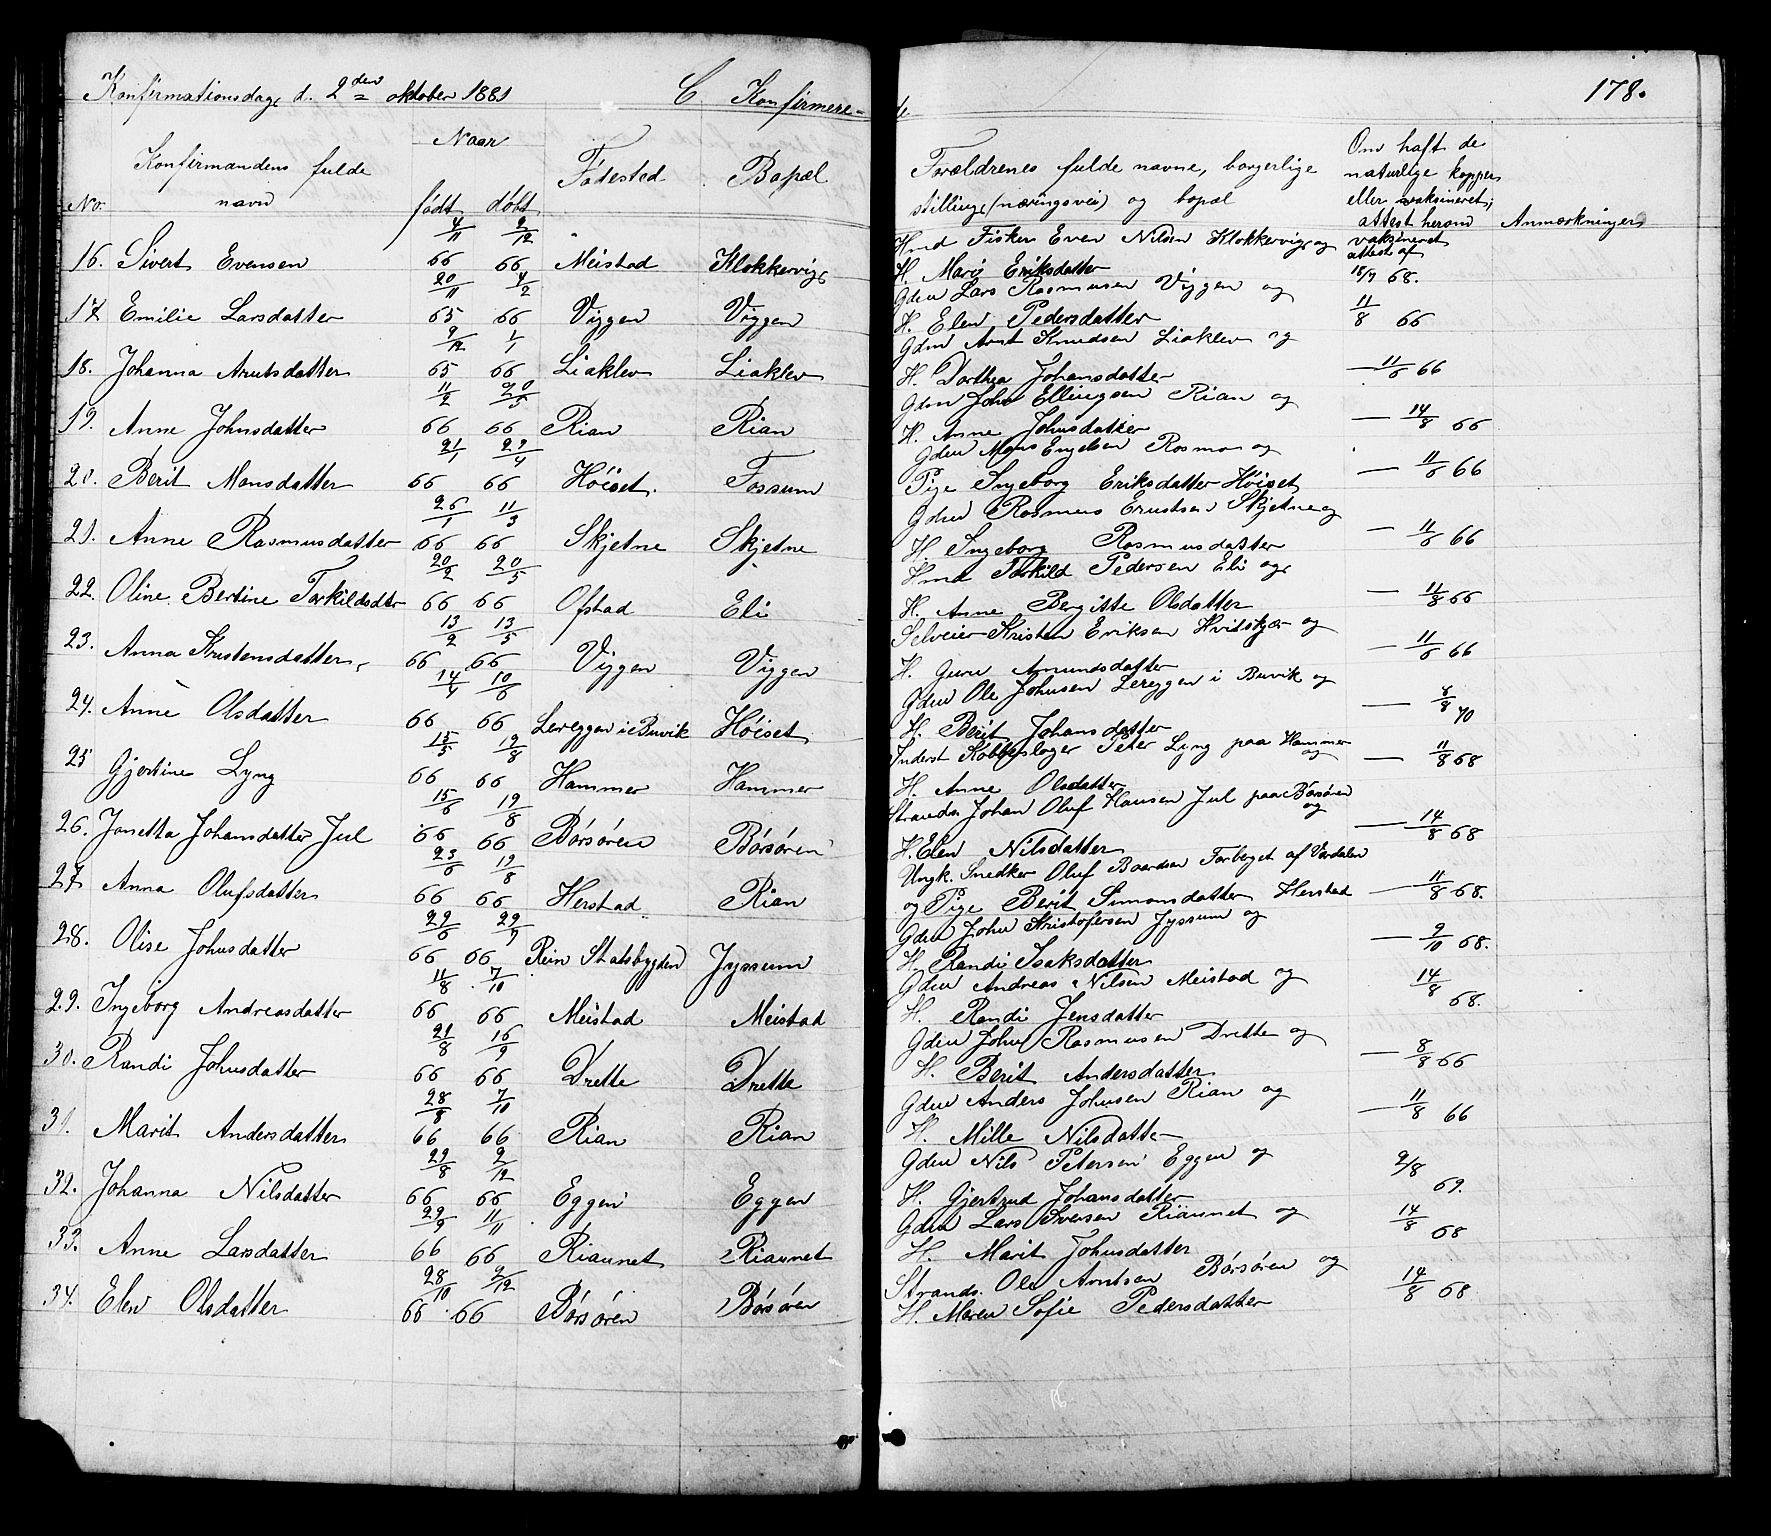 Konfirmationsdag, d. 2den oktober 1881 C Konfirmere-de 178.
No. Konfirmandens fulde navn Naar født døbt Fødested Bopæl Forældrenes fulde navne, borgerlige stilling (næringsvei) og bopæl Om haft de naturlige kopper eller vaksineret; attest herom Anmærkninger
16. Sivert Evensen 4/11 66 2/12 66 Meistad Klokkervig Hmd Fisker Even Nilsen Klokkervig og vaksineret attest af
H. Mari Eriksdatter 18/9 68.
17. Emilie Larsdatter 20/11 65 4/2 66 Viggen Viggen Gdm Lars Rasmusen Viggen og 11/8 66
H. Elen Pedersdatter
18. Johanna Arntsdatter 9/12 65 1/1 66 Liaklev Liaklev Gdm Arnt Knudsen Liaklev og
H. Dorthea Johansdatter — 11/6 66
19. Anne Johnsdatter 11/2 66 20/5 66 Rian Rian Gdm John Ellingsen Rian og
H. Anne Johnsdatter — 14/8 66
20. Berit Monsdatter 21/1 66 22/4 66 Höiset. Fossum Gdm Mons Engelsen Rosmo og
Pige Ingeborg Eriksdatter Höiset — 11/6 66
21. Anne Rasmusdatter 26/1 66 11/3 66 Skjetne Skjetne Gdm Rasmus Erntsen Skjetne og
H. Ingeborg Rasmusdatter — 11/6 66
22. Oline Bertine Torkildsdtr 20/2 66 20/5 66 Ofstad Eli Hmd Torkild Pedersen Eli og
H. Anne Bergitte Olsdatter — 11/8 66
23. Anna Kristensdatter 13/2 66 13/5 66 Viggen Viggen Selveier Kristen Eriksen Hvitskjær og
H. Guru Amundsdatter — 11/6 66
24. Anne Olsdatter 14/4 66 10/6 66 Lereggen i Buvik Höiset Gdm Ole Johnsen Lereggen i Buvik og
H. Berit Johansdatter — 8/8 70
25 Gjertine Lyng 15/5 66 19/8 66 Hammer Hammer Inderst Kobberslager Peter Lyng paa Hammer og
H. Anne Olsdatter — 11/8 68
26. Jonetta Johansdatter Jul 15/6 66 19/8 66 Börsören Börsören Strands. Johan Oluf Hansen Jul paa Börsören og
H. Elen Nilsdatter — 14/8 68
27 Anna Olufsdatter 23/6 66 19/8 66 Herstad Rian Ungk. Snedker Oluf Baardsen Forberget af Værdalen
og Pige Berit Simonsdatter Herstad — 11/8 68.
28. Olise Johnsdatter 29/6 66 29/7 66 Rein Statsbygden Jyssum Gdm John Kristofersen Jyssum og
H. Randi Isaksdatter — 9/10 68.
29. Ingeborg Andreasdatter 11/8 66 7/10 66 Meistad Meistad Gdm Andreas Nilsen Meistad og
H. Randi Jensdatter 14/8 68.
30. Randi Johnsdatter 21/8 66 16/9 66 Drette Drette Gdm John Rasmusen Drette og
H. Berit Andersdatter — 8/8 66
31. Marit Andersdatter 28/8 66 7/10 66 Rian Rian Gdm Anders Johnsen Rian og
H. Mille Nilsdatter — 11/8 66
32. Johanna Nilsdatter 29/8 66 2/12 66 Eggen Eggen Gdm Nils Petersen Eggen og
H. Gjertrud Johansdatter 9/8 69.
33. Anne Larsdatter 29/9 66 11/11 66 Riaunet Riaunet Gdm Lars Iversen Riaunet og
H. Marit Johnsdatter 14/8 68
34. Elen Olsdatter 28/10 66 2/12 66 Börsören Börsören Strands. Ole Arntsen Börsören og
H. Maren Sofie Pedersdatter 14/8 68